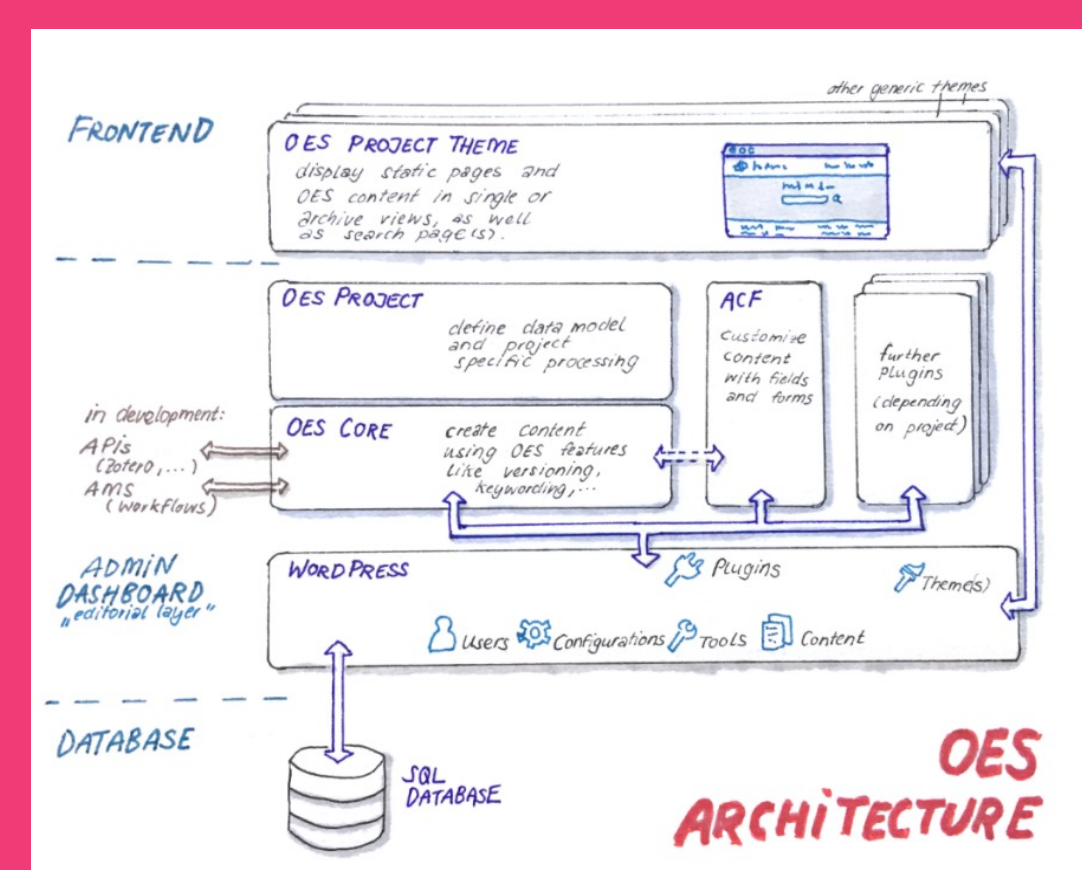 other generic themes
FRONTEND
OES PROJECT THEME
display static pages and
OES content in single or
archive views, as well
as search page(s).
OES PROJECT
define data model
and project
specific processing
ACF
customize
content
with fields
and forms
further
plugins
(depending
on project)
in development:
APIs
(Zotero, ...)
AMS
(workflows)
OES CORE
create content
using OES features
like versioning,
keywording, ...
ADMIN
DASHBOARD
„editorial layer"
WORDPRESS
Plugins
Theme(s)
Users
Configurations
Tools
Content
DATABASE
SQL
DATABASE
OES
ARCHiTECTURE